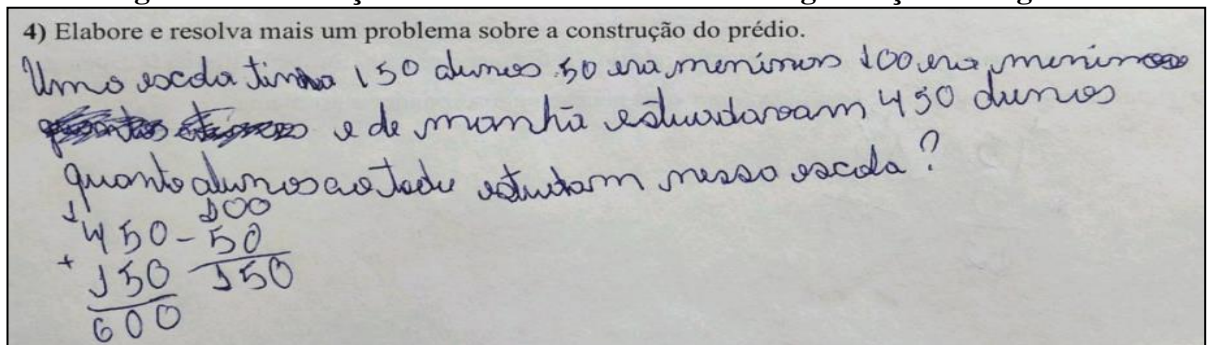 4) Elabore e resolva mais um problema sobre a construção do prédio.
Uma escola tinha 150 alunos 50 era meninos 100 era meninas
e de manhã estudaram 450 alunos
quanto alunos ao todo estudam nessa escola?
1 100
450 - 50
+ 150 150
600